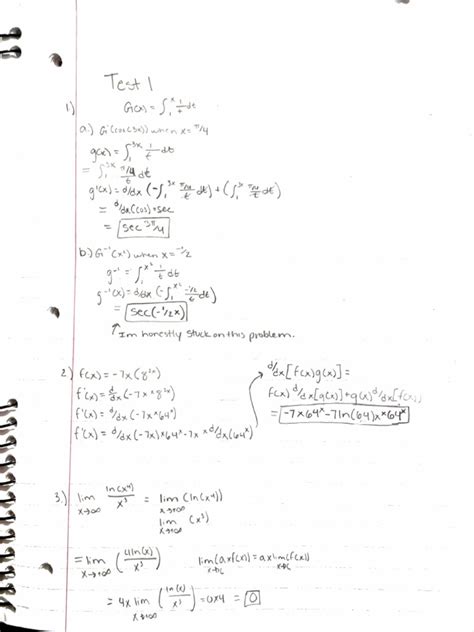 Test 1
1) G(x) = ∫₁ˣ 1/t dt
a.) G'(cos(3x)) when x = π/4
g(x) = ∫₁³ˣ 1/t dt
= ∫₁³ˣ π/4/t dt
g'(x) = d/dx (-∫₁³ˣ π/4/t dt) + (∫₁³ˣ π/4/t dt)
= d/dx (cos) + sec
= sec 3π/4
b.) G⁻¹(x²) when x = -1/2
g⁻¹ = ∫₁^x² 1/t dt
g⁻¹(x) = d/dx (-∫₁^x² -1/2/t dt)
= sec(-1/2x)
↑ Im honestly stuck on this problem.
2.) f(x) = -7x(8²ˣ)
f'(x) = d/dx (-7x × 8²ˣ)
f'(x) = d/dx (-7x × 64ˣ)
f'(x) = d/dx (-7x) × 64ˣ - 7x × d/dx (64ˣ)
d/dx [f(x)g(x)] =
f(x) d/dx [g(x)] + g(x) d/dx [f(x)]
= -7 × 64ˣ - 7 ln(64)x × 64ˣ
3.) lim x→∞ ln(x⁴)/x³ = lim x→+∞ (ln(x⁴)) / lim x→+∞ (x³)
= lim x→+∞ (4ln(x)/x³) lim x→c (axf(x)) = ax lim x→c (f(x))
= 4x lim x→+∞ (ln(x)/x³) = 0x4 = 0